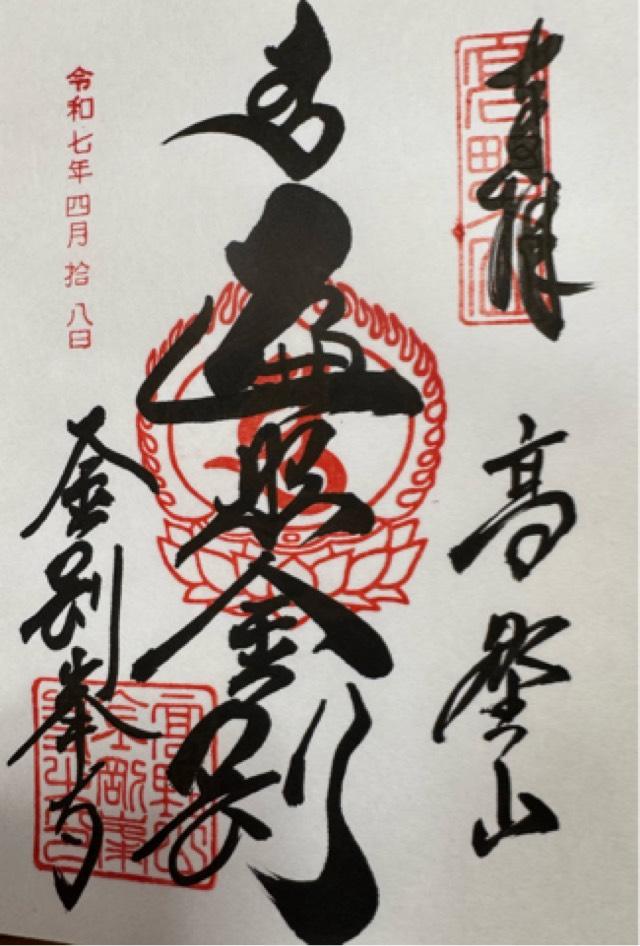 奉拝
高埜山
遍照金剛
金剛峯寺
令和七年四月拾八日